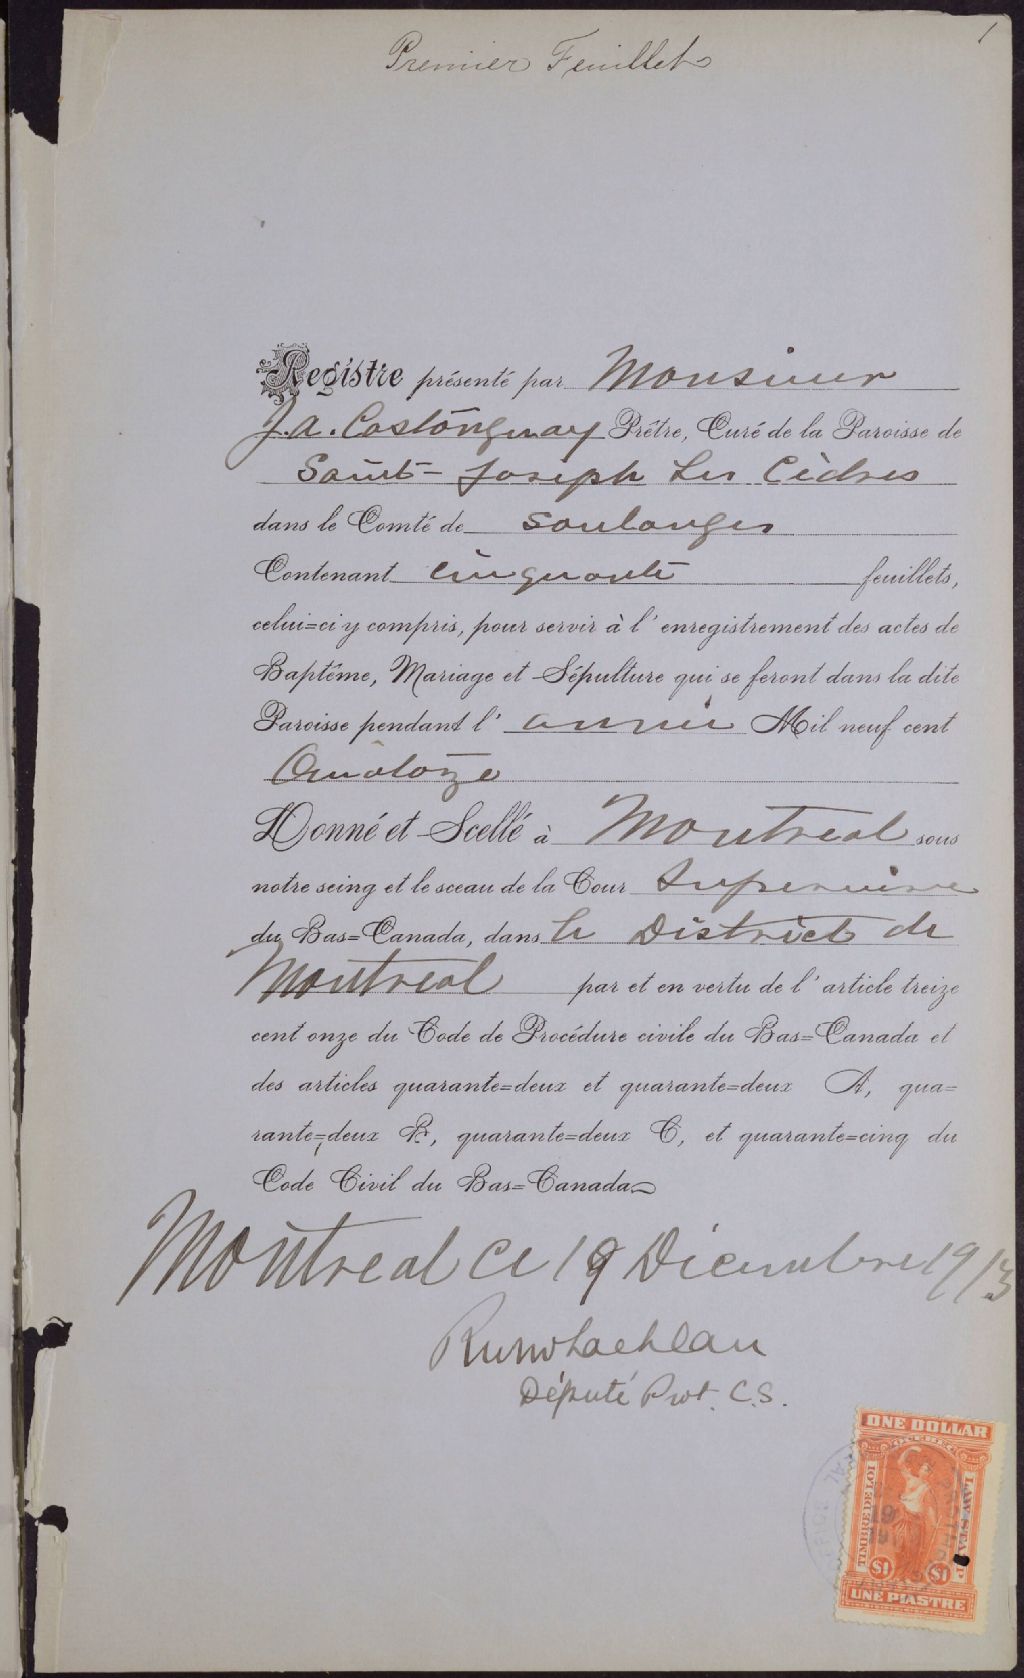 1
Premier Feuillet
Registre présenté par Monsieur
J. A. Castonguay Prêtre, Curé de la Paroisse de
Saint-Joseph Les Cèdres
dans le Comté de Soulanges
Contenant cinquante feuillets,
celui=ci y compris, pour servir à l'enregistrement des actes de
Baptême, Mariage et Sépulture qui se feront dans la dite
Paroisse pendant l'année Mil neuf cent
Quatorze
Donné et Scellé à Montreal sous
notre seing et le sceau de la Cour Superieure
du Bas=Canada, dans le District de
Montreal par et en vertu de l'article treize
cent onze du Code de Procédure civile du Bas=Canada et
des articles quarante=deux et quarante=deux A, qua=
rante=deux B, quarante=deux C, et quarante=cinq du
Code Civil du Bas=Canada
Montreal ce 19 Décembre 1913
Député Prot. C.S.
ONE DOLLAR
QUEBEC
TIMBRE DE LOI
LAW STAMP
19
$1 $1
UNE PIASTRE